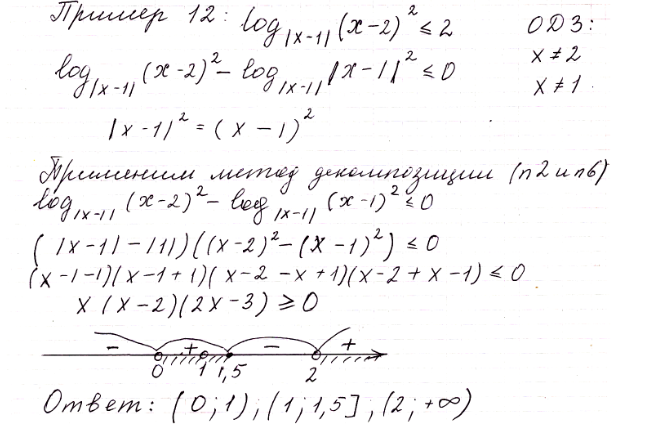 Пример 12: log|x-1| (x-2)² ≤ 2 ОДЗ:
log|x-1| (x-2)² - log|x-1| |x-1|² ≤ 0 x ≠ 2
x ≠ 1
|x-1|² = (x-1)²
Применим метод декомпозиции (п2 и п6)
log|x-1| (x-2)² - log|x-1| (x-1)² ≤ 0
(|x-1| - |1|)((x-2)² - (x-1)²) ≤ 0
(x-1-1)(x-1+1)(x-2-x+1)(x-2+x-1) ≤ 0
x (x-2)(2x-3) ≥ 0
- + - +
0 1 1,5 2
Ответ: (0; 1), (1; 1,5], (2; +∞)